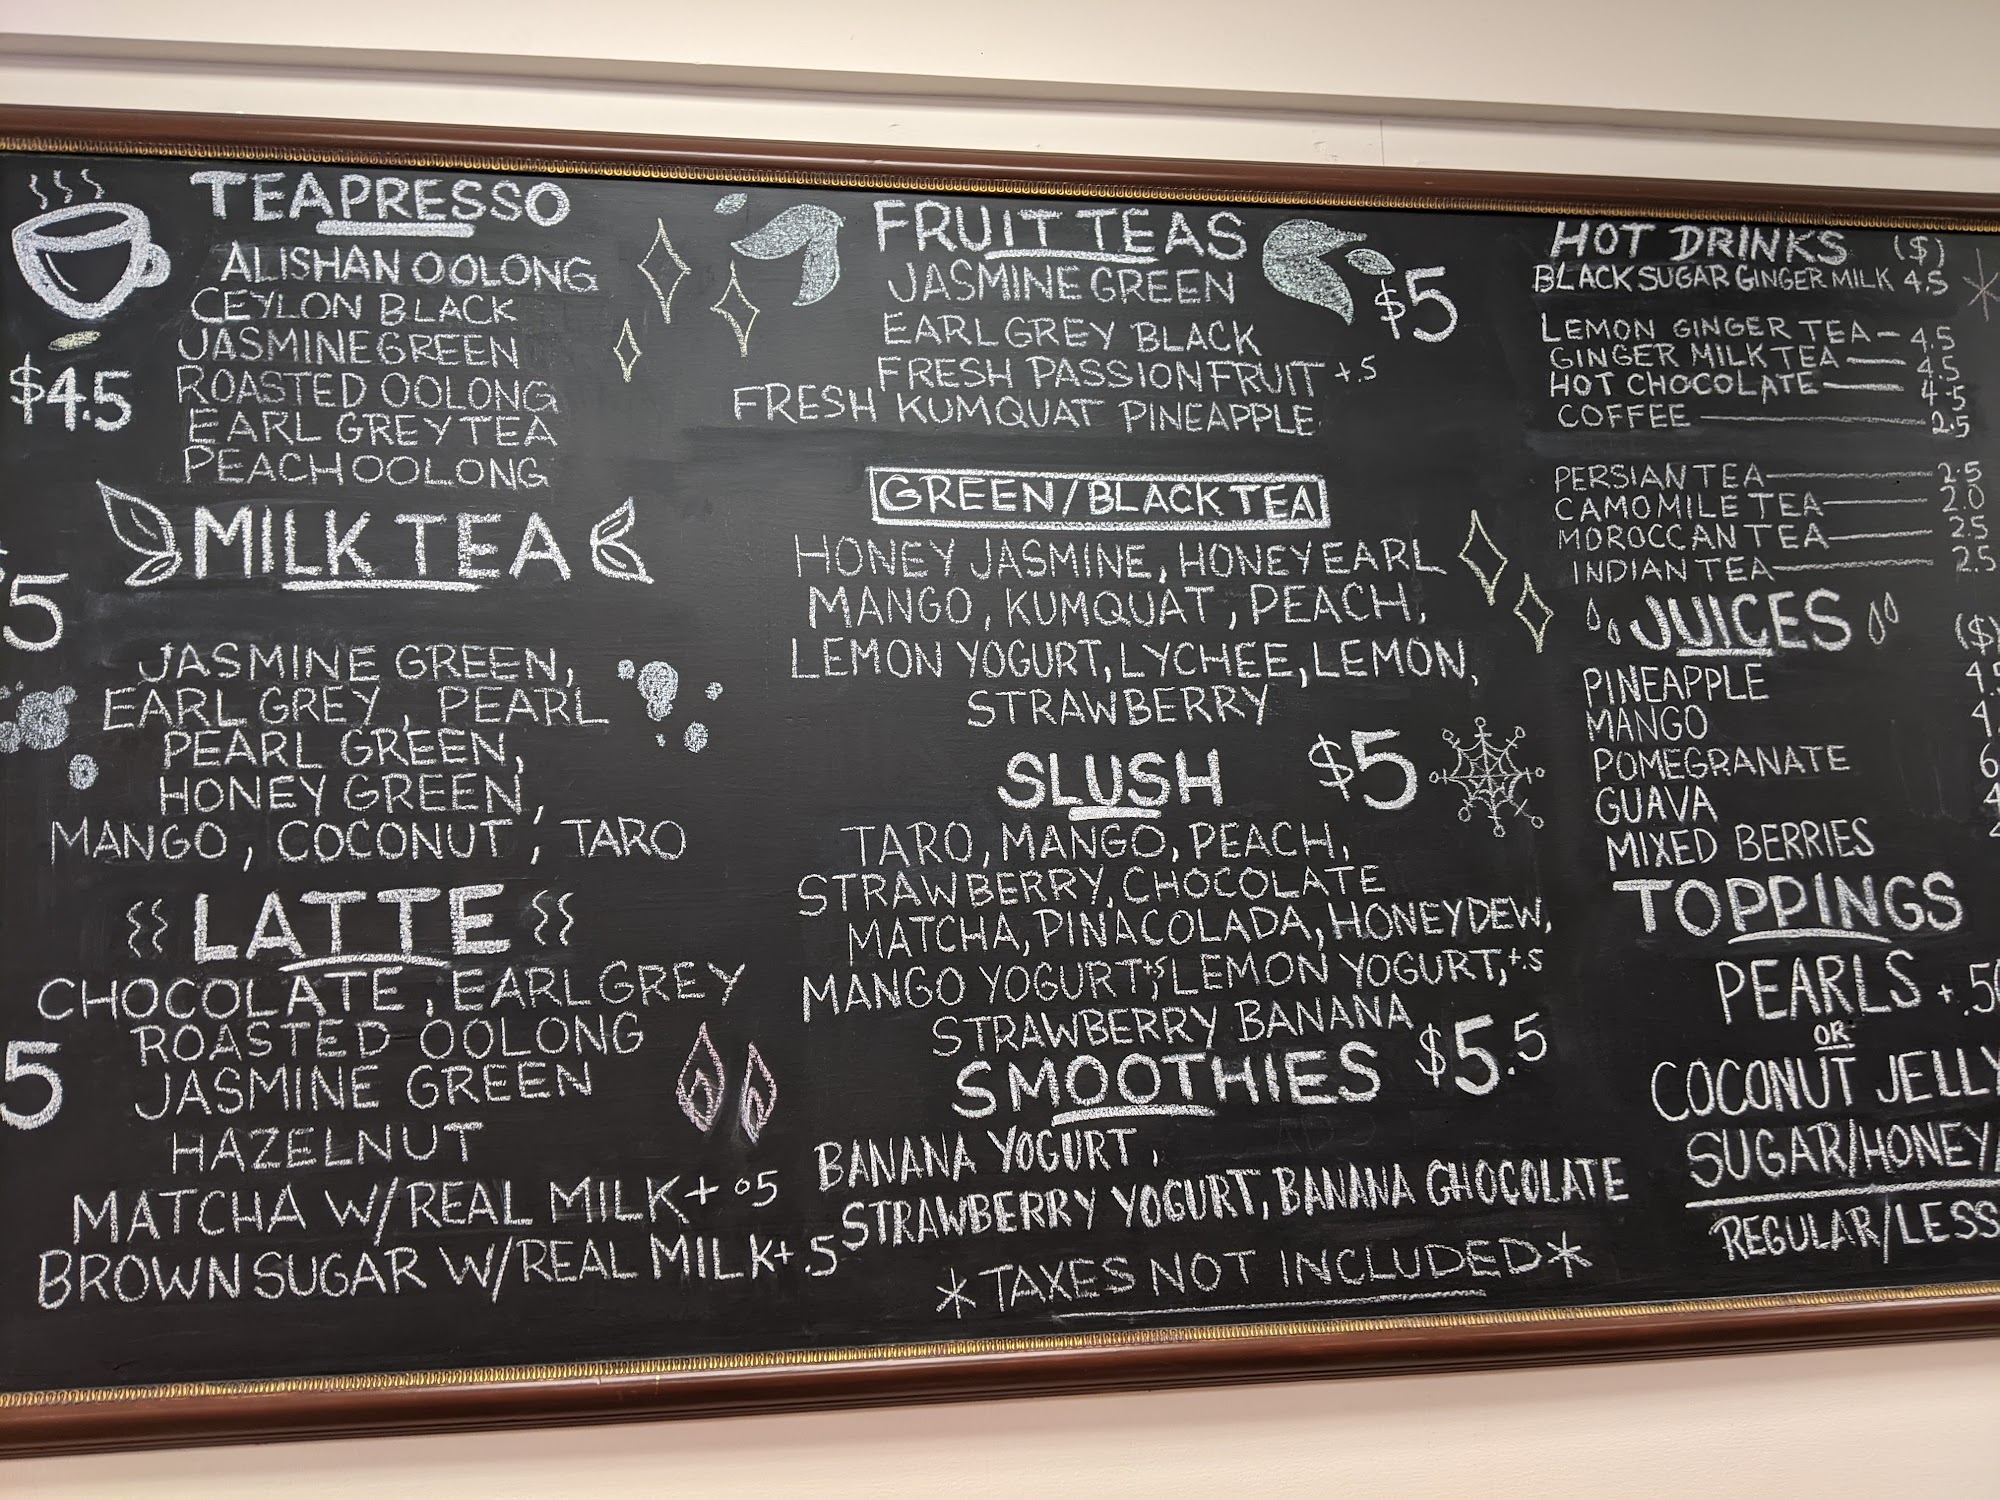 TEAPRESSO
ALISHAN OOLONG
CEYLON BLACK
JASMINE GREEN
$4.5
ROASTED OOLONG
EARL GREY TEA
PEACH OOLONG
MILK TEA
5
JASMINE GREEN,
EARL GREY, PEARL
PEARL GREEN,
HONEY GREEN,
MANGO, COCONUT, TARO
LATTE
CHOCOLATE, EARL GREY
ROASTED OOLONG
5
JASMINE GREEN
HAZELNUT
MATCHA W/REAL MILK + .5
BROWN SUGAR W/REAL MILK + .5
FRUIT TEAS
$5
JASMINE GREEN
EARL GREY BLACK
FRESH PASSIONFRUIT +.5
FRESH KUMQUAT PINEAPPLE
GREEN/BLACK TEA
HONEY JASMINE, HONEY EARL
MANGO, KUMQUAT, PEACH,
LEMON YOGURT, LYCHEE, LEMON,
STRAWBERRY
SLUSH $5
TARO, MANGO, PEACH,
STRAWBERRY, CHOCOLATE
MATCHA, PINACOLADA, HONEYDEW,
MANGO YOGURT+.5, LEMON YOGURT, +.5
STRAWBERRY BANANA
SMOOTHIES $5.5
BANANA YOGURT,
STRAWBERRY YOGURT, BANANA CHOCOLATE
*TAXES NOT INCLUDED*
HOT DRINKS ($)
BLACK SUGAR GINGER MILK 4.5
LEMON GINGER TEA — 4.5
GINGER MILK TEA — 4.5
HOT CHOCOLATE — 4.5
COFFEE — 2.5
PERSIAN TEA — 2.5
CAMOMILE TEA — 2.0
MOROCCAN TEA — 2.5
INDIAN TEA — 2.5
JUICES ($)
PINEAPPLE 4.5
MANGO 4.
POMEGRANATE 6
GUAVA 4
MIXED BERRIES
TOPPINGS
PEARLS + .50
OR
COCONUT JELLY
SUGAR/HONEY/
REGULAR/LESS